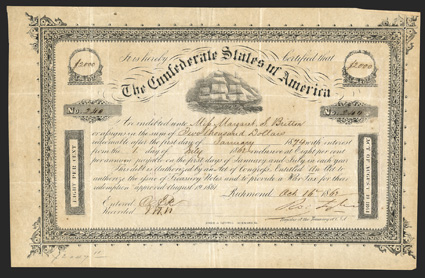 It is hereby Certified that
The Confederate States of America
$2000
$2000
No. 240
No. 240
be indebted unto Miss Margaret S. Britton
or assigns in the sum of Two thousand Dollars
redeemable after the first day of January 1874 with interest
from the day of July 1862 inclusive at Eight per cent
per annum payable on the first days of January and July in each year
This debt is Authorized by an Act of Congress Entitled "An Act to
authorize the issue of Treasury Notes and to provide a War Tax for their
redemption" approved August 19 1861
EIGHT PER CENT
Richmond Oct 14th 1862
Entered
Recorded
Register of the Treasury C.S.A.